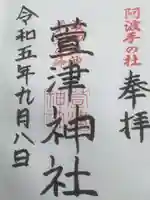 阿波手の社
奉拝
萱津神社
令和五年九月八日